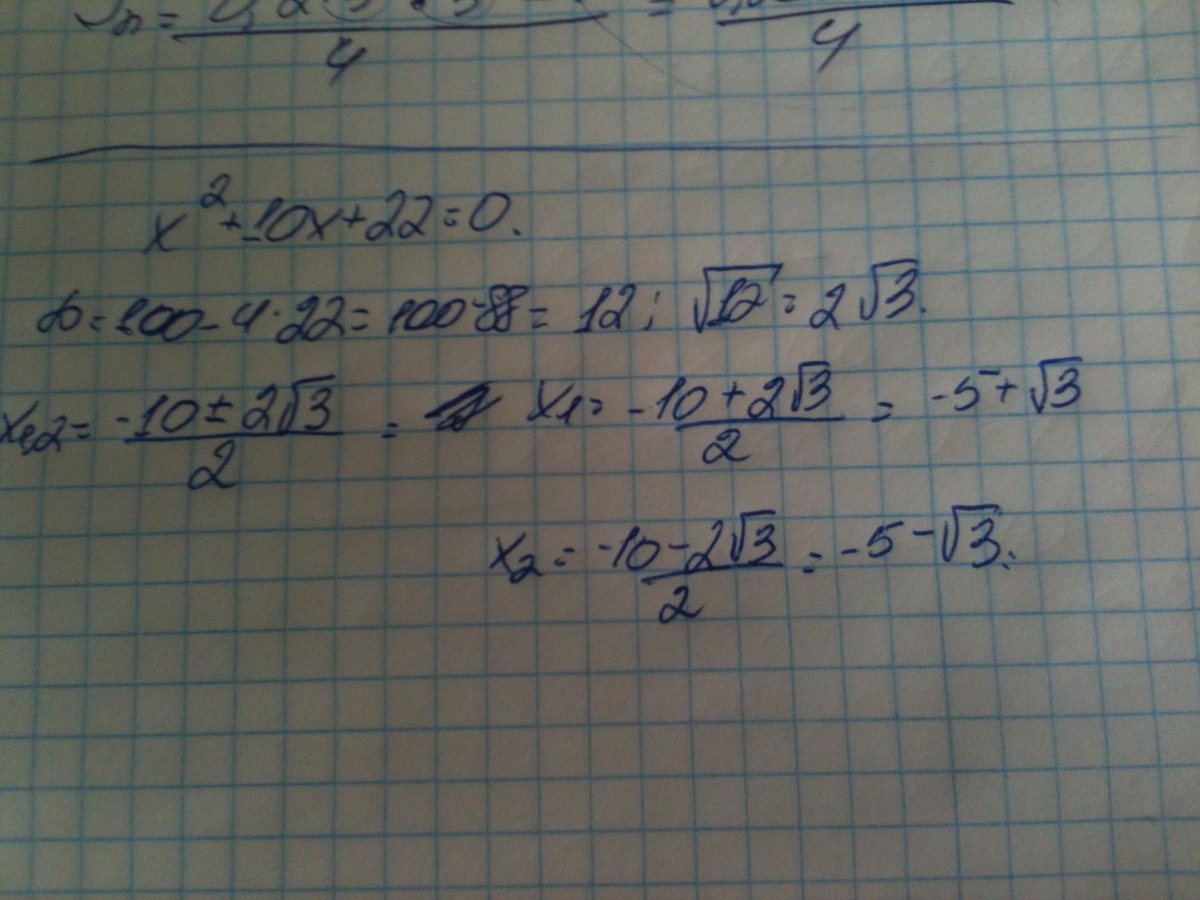 4
4
x² + 10x + 22 = 0.
D = 100 - 4 · 22 = 100 - 88 = 12; √12 = 2√3.
x₁,₂ = (-10 ± 2√3)/2 = x₁ = (-10 + 2√3)/2 = -5 + √3
x₂ = (-10 - 2√3)/2 = -5 - √3.